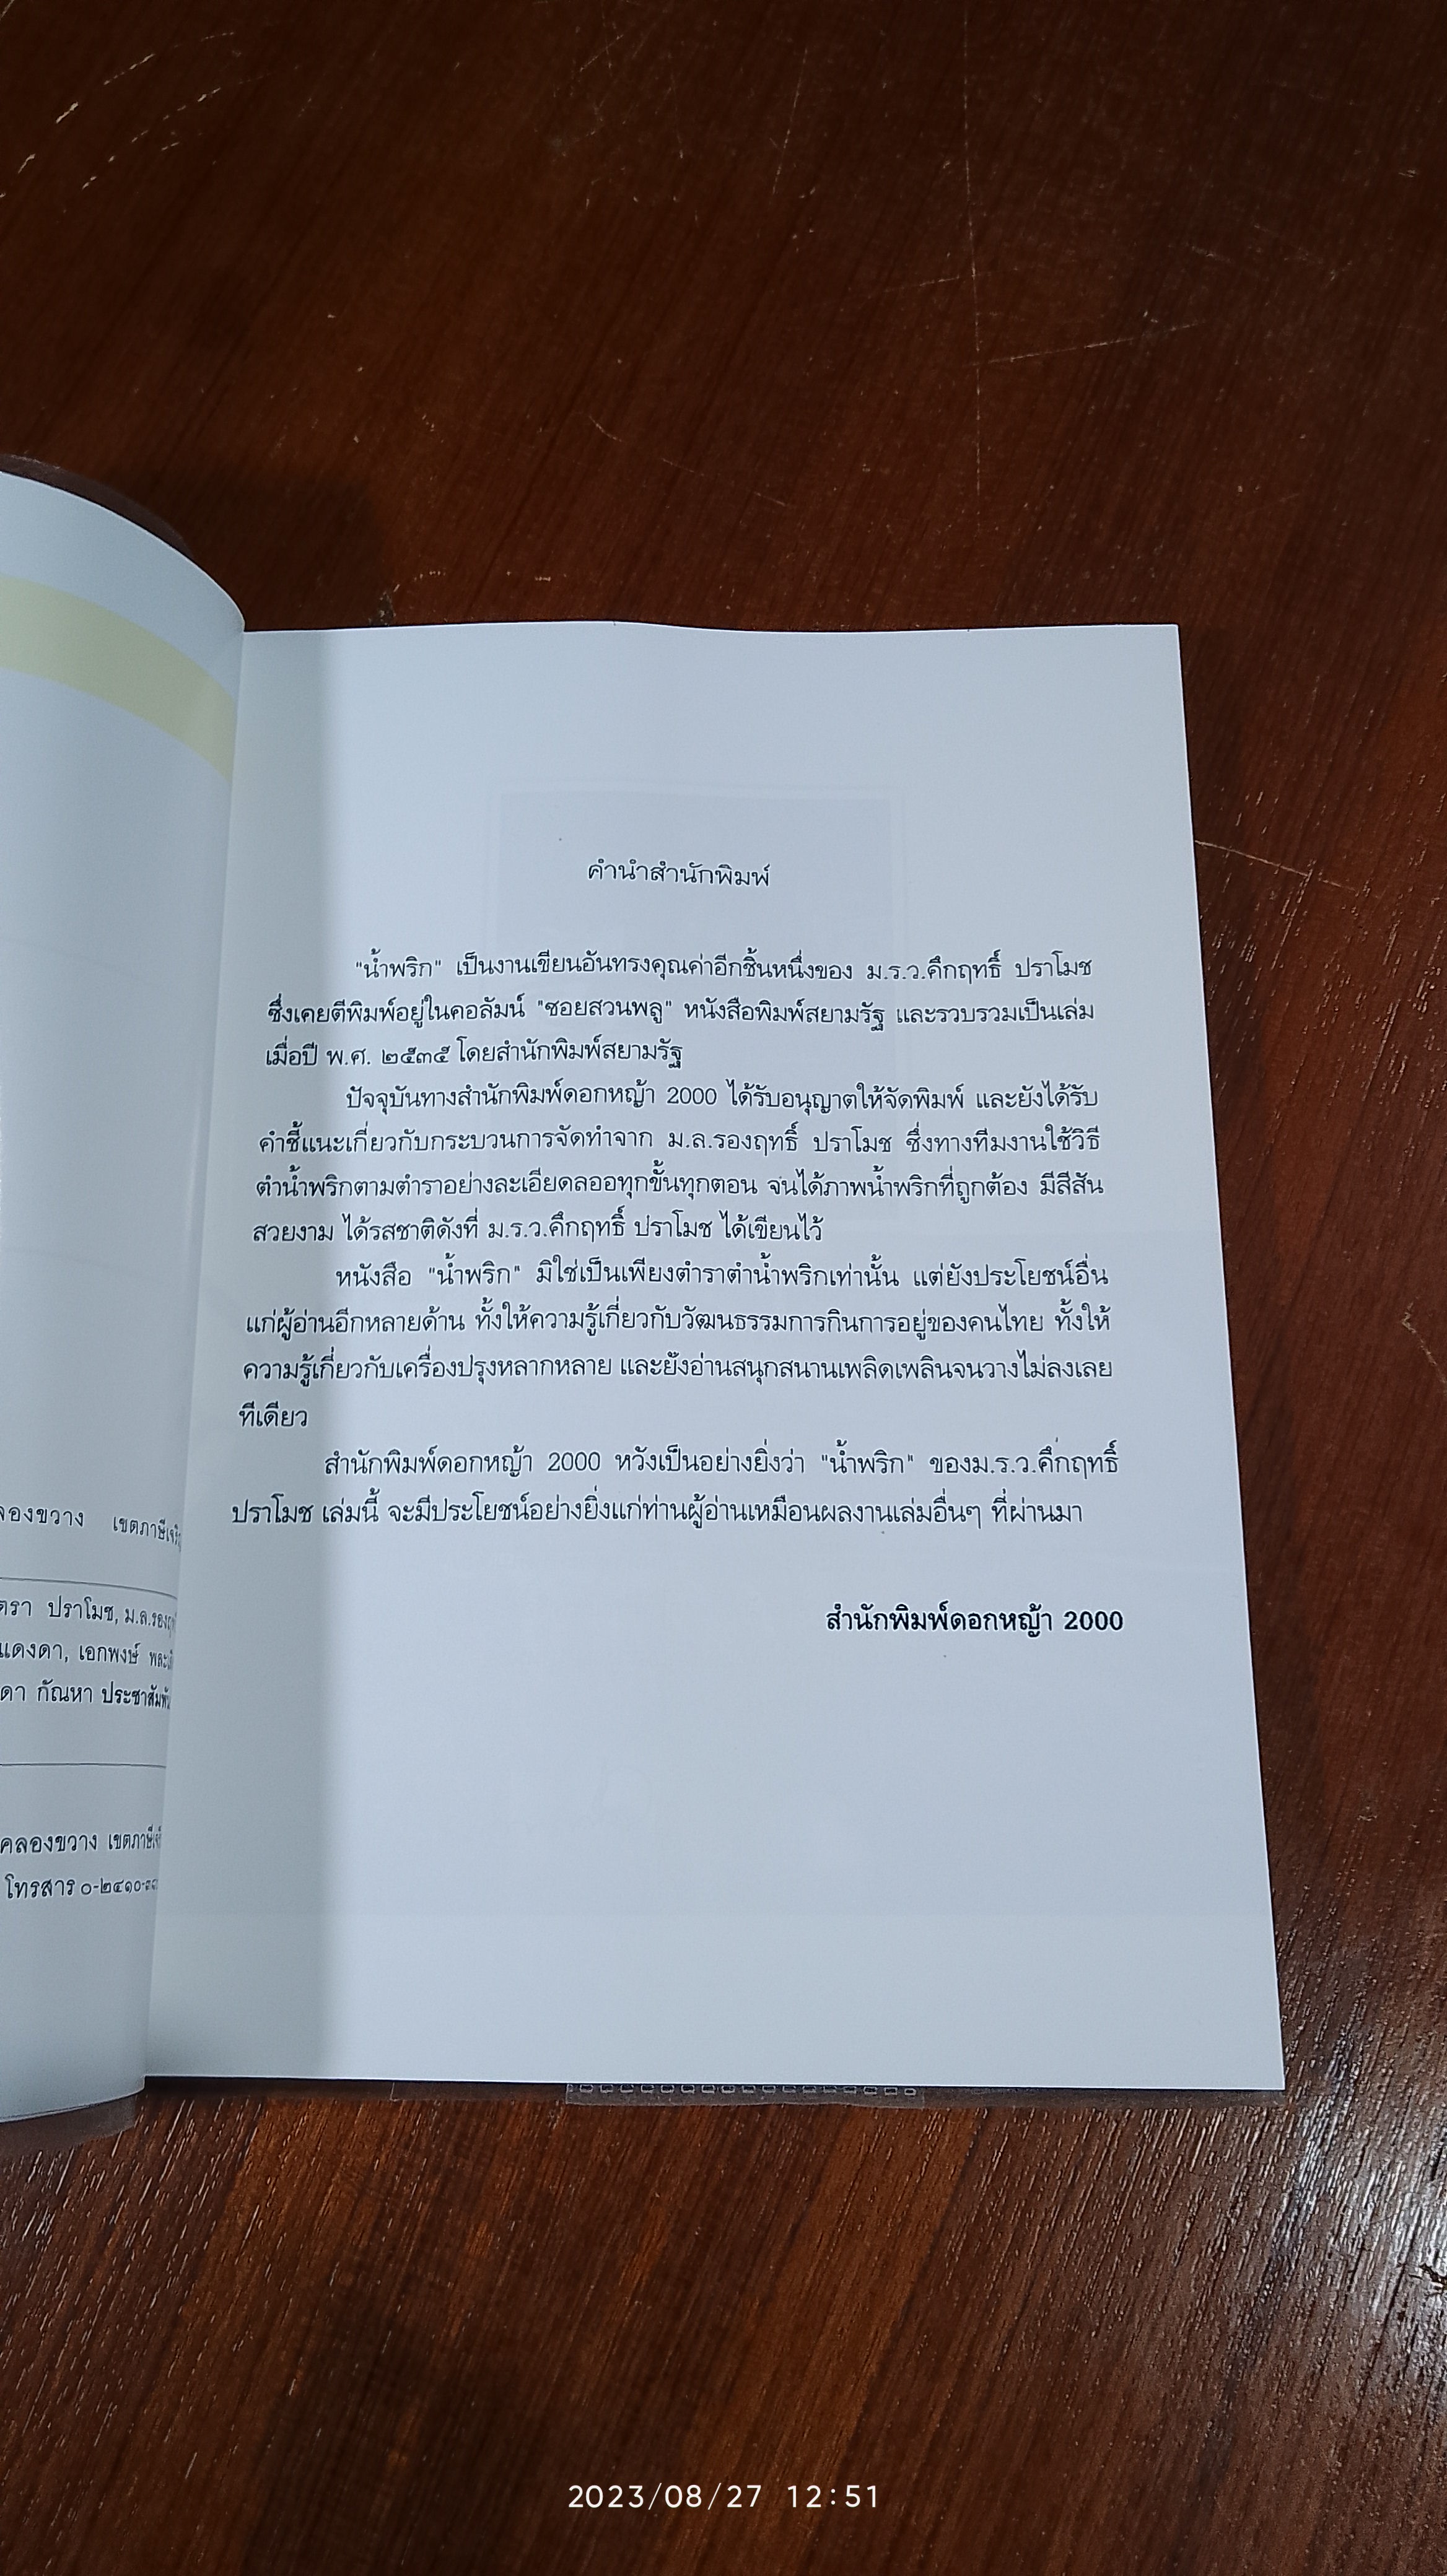 คำนำสำนักพิมพ์
"น้ำพริก" เป็นงานเขียนอันทรงคุณค่าอีกชิ้นหนึ่งของ ม.ร.ว.คึกฤทธิ์ ปราโมช
ซึ่งเคยตีพิมพ์อยู่ในคอลัมน์ "ซอยสวนพลู" หนังสือพิมพ์สยามรัฐ และรวบรวมเป็นเล่ม
เมื่อปี พ.ศ. ๒๕๓๕ โดยสำนักพิมพ์สยามรัฐ
ปัจจุบันทางสำนักพิมพ์ดอกหญ้า 2000 ได้รับอนุญาตให้จัดพิมพ์ และยังได้รับ
คำชี้แนะเกี่ยวกับกระบวนการจัดทำจาก ม.ล.รองฤทธิ์ ปราโมช ซึ่งทางทีมงานใช้วิธี
ตำน้ำพริกตามตำราอย่างละเอียดลออทุกขั้นทุกตอน จนได้ภาพน้ำพริกที่ถูกต้อง มีสีสัน
สวยงาม ได้รสชาติดังที่ ม.ร.ว.คึกฤทธิ์ ปราโมช ได้เขียนไว้
หนังสือ "น้ำพริก" มิใช่เป็นเพียงตำราตำน้ำพริกเท่านั้น แต่ยังประโยชน์อื่น
แก่ผู้อ่านอีกหลายด้าน ทั้งให้ความรู้เกี่ยวกับวัฒนธรรมการกินการอยู่ของคนไทย ทั้งให้
ความรู้เกี่ยวกับเครื่องปรุงหลากหลาย และยังอ่านสนุกสนานเพลิดเพลินจนวางไม่ลงเลย
ทีเดียว
สำนักพิมพ์ดอกหญ้า 2000 หวังเป็นอย่างยิ่งว่า "น้ำพริก" ของม.ร.ว.คึกฤทธิ์
ปราโมช เล่มนี้ จะมีประโยชน์อย่างยิ่งแก่ท่านผู้อ่านเหมือนผลงานเล่มอื่นๆ ที่ผ่านมา
สำนักพิมพ์ดอกหญ้า 2000
ปราโมช,
แดงดา, เอกพงษ์
กัณหา
คลองขวาง
โทรสาร
2023/08/27 12:51